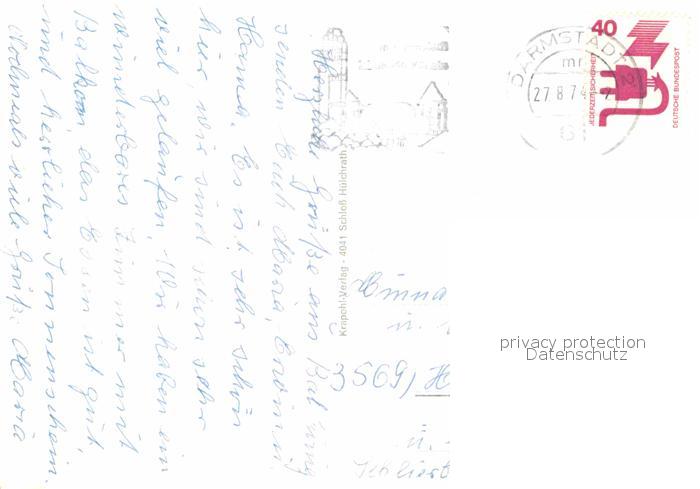 Herzliche Grüße aus Bad König
senden Euch Maria, Erwin u.
Hanna. Es ist sehr schön
hier wir sind schon sehr
viel gelaufen. Wir haben ein
wunderbares Zimmer mit
Balkon das Essen ist gut,
und herrlicher Sonnenschein.
Nochmals viele Grüße Maria
Krapohl-Verlag - 4041 Schloß Hülchrath
u.
3569
u.
DARMSTADT 2
mr
27.8.7
6
40
JEDERZEIT SICHERHEIT
DEUTSCHE BUNDESPOST
privacy protection
Datenschutz